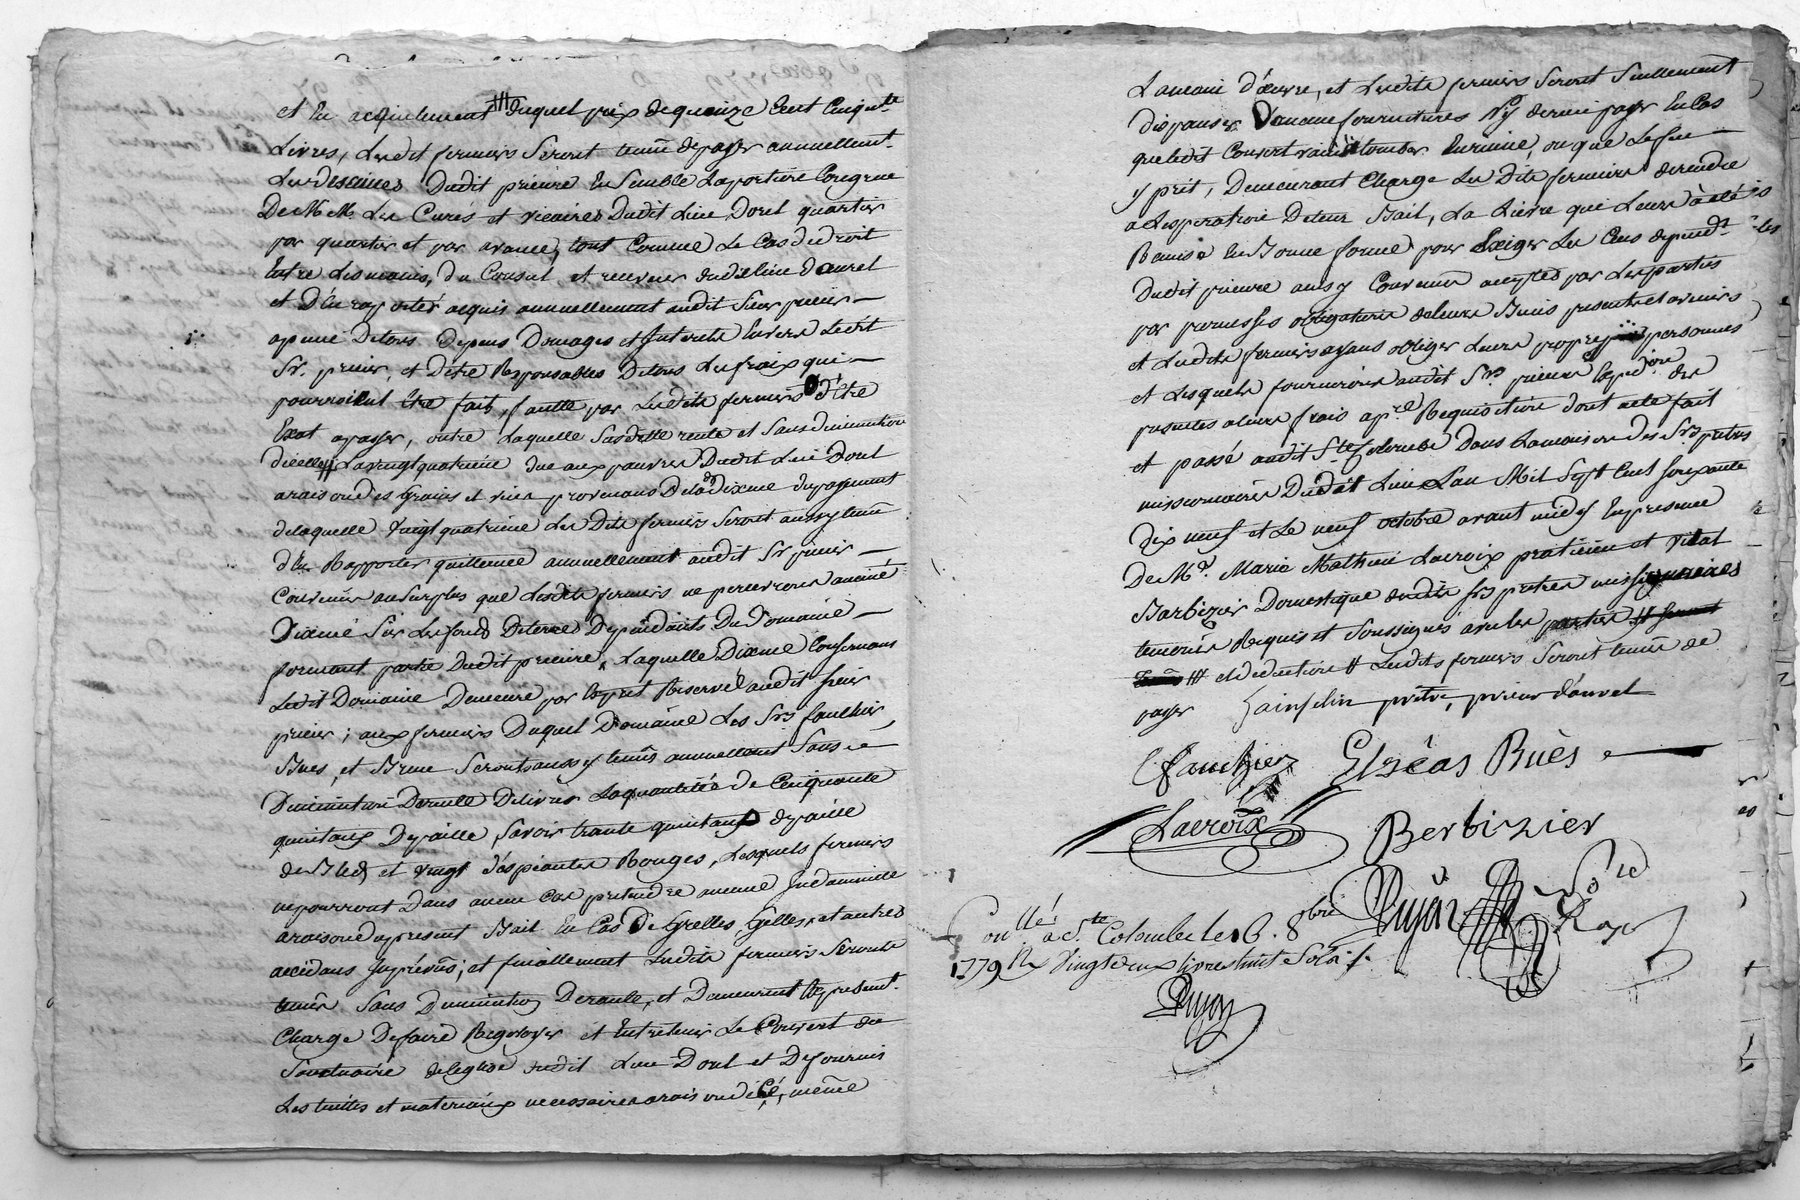 et en acquitement # duquel prix de quinze cent cinqte
Livres, Lesdit fermiers Seront tenu de payer annuellemt
Les dessimes Dudit prieuré Ensemble Laportion Congrue
De MM. Les Curés et vicaires Dudit Lieu Dorel quartier
par quartier et par avance, tout Comme Le Cas de droit
Entre Les mains, du Consul et receveur dudit lieu daurel
et D'En rapporter acquis annuellement audit Sieur prieur
apeine De tous Depens Domages et Interets Envers Ledit
Sr. prieur, et D'etre Responsables De tous Les fraix qui
pourroient Etre fait, faute par Lesdits fermiers D'Etre
Exat apayer, outre Laquelle Susditte rente et Sans diminution
D'icelle # La vingtquatrieme due aux pauvres Dudit Lieu Dorel
araison des Grains et vin provenans De la Dixme du payement
de laquelle Vingtquatrieme Les Dits fermiers Seront aussy tenu
d'En Rapporter quittence annuellement audit Sr prieur
Convenu au Surplus que Lesdits fermiers ne percevront aucune
Dixme Sur Les fonds De terre Dependants Du Domaine
formant partie Dudit prieuré, Laquelle Dixme Concernant
Ledit Domaine Demeure par Exprès Reservé audit Sieur
prieur; aux fermiers Duquel Domaine Les Srs fauchier,
Bues, et Brun Seront aussy tenus annuellement Sans
Diminution De rente De livrer La quantité de Cinquante
quintaux De paille, Savoir trante quintaux de paille
de Bled, et vingt d'espeautre Rouges, Lesquels fermiers
ne pourront Dans aucun Cas pretendre aucune Indamnité
araison du present Bail En Cas De Grelles, Gellés, et autres
accidans Imprévus; et finallement Lesdits fermiers Seront
tenus Sans Diminution De rente, et Demeurent Expressemt
Chargé De faire Regotoyer et Entretenir Le Couvert du
Sanctuaire de l'eglise dudit Lieu Dorel et De fournir
Les tuiles et materiaux necessaires araison de Cé, même
Lamain d'œuvre, et Lesdits fermiers Seront Seullement
dispansés D'aucune fournitures Ny de rien payer En Cas
que ledit Couvert vaint atomber En ruine, ou que Le feu
y prit, Demeurant Chargé Les Dits fermiers de rendre
a L'expiration De leur Bail, La Lievre qui Leur à été
Remise En Bonne forme pour Exiger Les Cens dependt
Dudit prieuré ainsy Convenu accepté par Les parties
par promesses obligations de leurs Biens presents et avenirs
et Lesdits fermiers ayans obliger Leurs propres personnes
et Lesquels fourniront audit Sr. prieur Expedion des
presentes a leurs frais apre Requisition dont acte fait
et passé audit Ste Colombe Dans La maison des Srs pretres
missionnaires Dudit Lieu L'an Mil Sept Cens soixante
Dix neuf et Le neuf octobre avant midy En presence
De Mr. Marie Mathieu Lacroix praticien et Vidal
Barbizier Domestique desdits Srs pretres missionnaires
temoins Requis et Soussignés avec les parties
# et deduction # Lesdits fermiers Seront tenus de
payer
Jainselin prêtre, prieur d'aurel
Cfauchier Elzéas Buès
Lacroix Berbizier
Pujon Nore Roy
Conllé a Ste Colombe le 16. 8bre
1779 R vingt deux livres huit Sols
Pujon